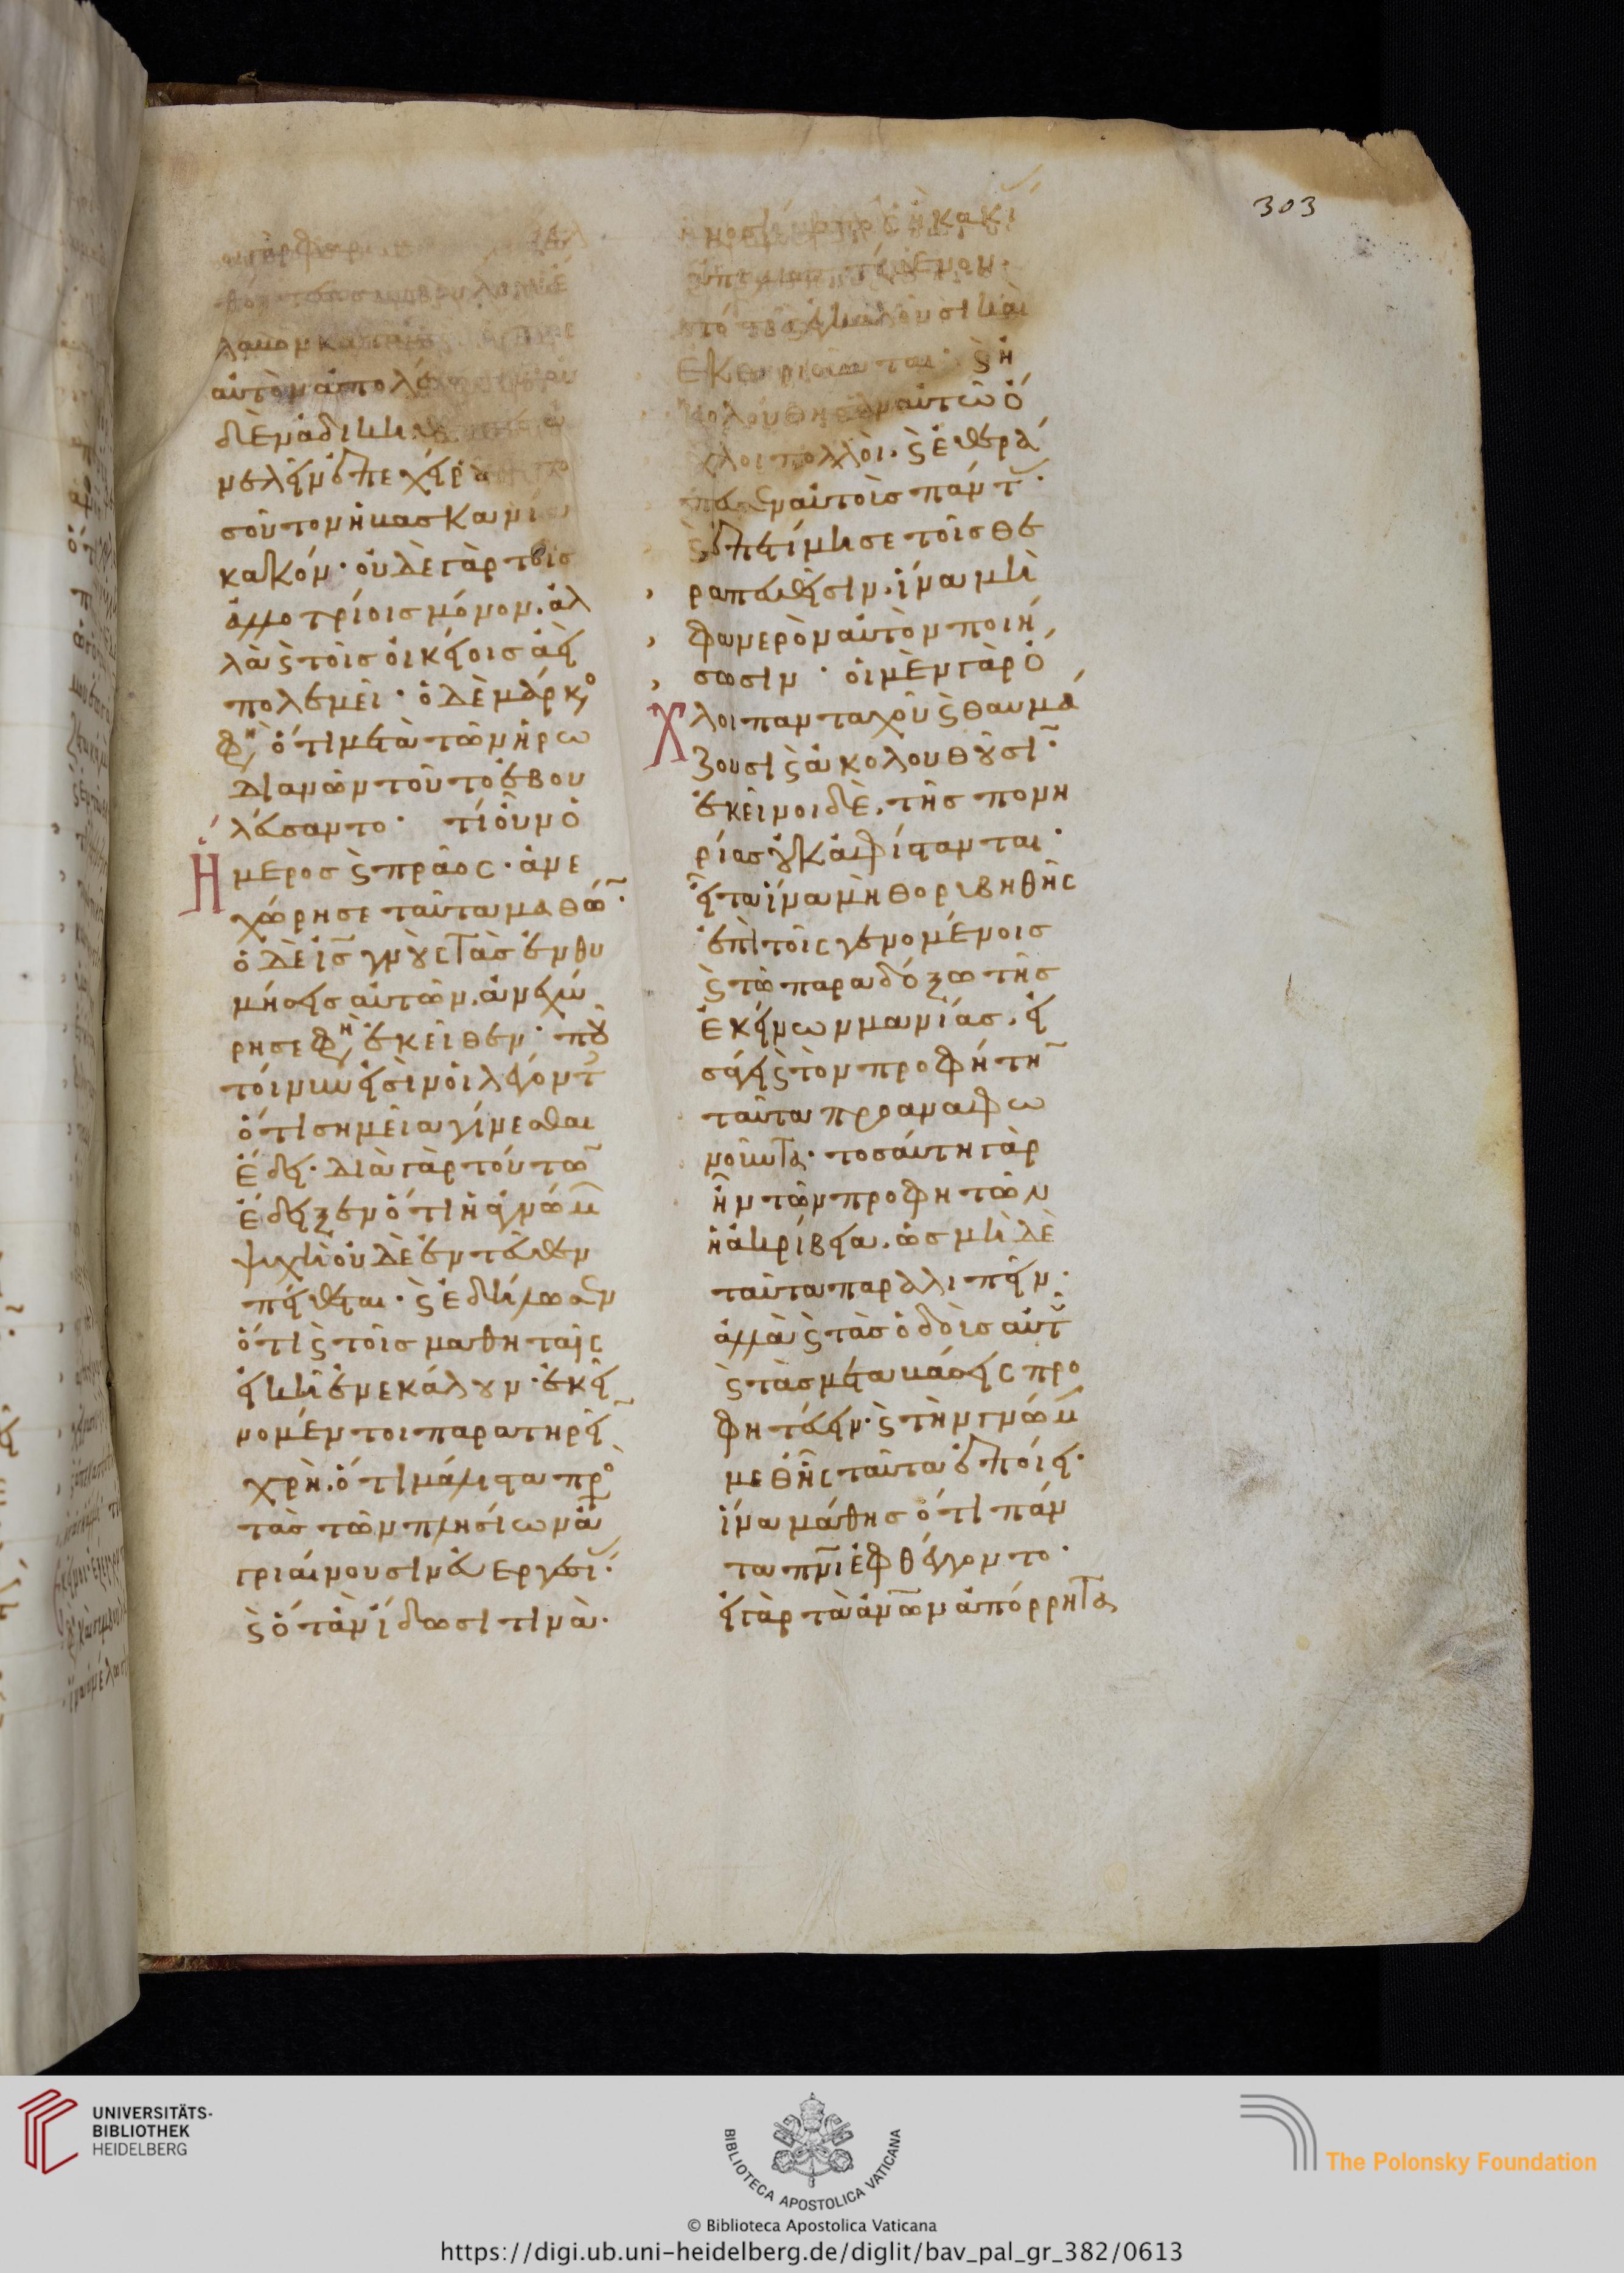 λαβον
αὐτὸν ἀπολέ
δὲν ἀδικη
μελεῖν ἐπεχείρ
σοῦτον ἡ βασκανί
κακόν· οὐδὲ γὰρ τοῖς
ἀλλοτρίοις μόνον, ἀλ
λὰ ϛ τοῖς οἰκείοις ἀεὶ
πολεμεῖ· ὁ δὲ μάρκο
φη ὅτι μετὰ τῶν ἡρω
διανῶν τοῦτο ἐβου
λεύσαντο· τί οὖν ὁ
ἥμερος ϛ πρᾶος· ἀνε
χώρησε ταῦτα μαθώ̄·
ὁ δὲ ι̅σ̅ γνοὺς τὰς ἐνθυ
μήσεις αὐτῶν, ἀνεχώ
ρησε φη ἐκεῖθεν· ποῦ
τοίνυν εἰσὶν οἱ λέγοντ
ὅτι σημεῖα γίνεσθαι
ἔδει· διὰ γὰρ τούτω̄
ἔδειξεν ὅτι ἡ ἀγνώμω̄
ψυχὴ οὐδὲ ἐντεῦθεν
πείθεται· ϛ ἐδήλωσεν
ὅτι ϛ τοῖς μαθηταῖς
εἰκῆ ἐνεκάλουν· ἐκεῖ
νο μέντοι παρατηρεῖ̄
χρὴ, ὅτι μάλιστα πρὸ
τὰς τῶν πλησίων ἀ
γριαίνουσιν εὐεργεσί·
ϛ ὅταν ἴδωσί τινὰ·
κακί
τότε ἐγκαλοῦσι καὶ
ἐκθηριοῦνται· ϛ ἠ
κολούθησαν αὐτῶ ὄ
χλοι πολλοὶ· ϛ ἐθερά
πευσεν αὐτοὺς πάντ·
ϛ ἐπετίμησε τοῖς θε
ραπευθεῖσιν, ἵνα μὴ
φανερὸν αὐτὸν ποιή
σωσιν· οἱ μὲν γὰρ ὄ
χλοι πανταχοῦ ϛ θαυμά
ζουσι ϛ ἀκολουθοῦσῑ·
ἐκεῖνοι δὲ, τῆς πονη
ρίας οὐκ ἀφίστανται·
εἶτα ἵνα μὴ θορυβηθῆς
ἐπὶ τοῖς γενομένοις
ϛ τῶ παραδόξω τῆς
ἐκείνων μανίας, εἰ
σάγει ϛ τὸν προφήτη̄
ταῦτα προαναφω
νοῦντα· τοσαύτη γὰρ
ἦν τῶν προφητῶν
ἡ ἀκρίβεια, ὡς μὴ δὲ
ταῦτα παραλιπεῖν·
ἀλλὰ ϛ τὰς ὁδοὺς αὐτ
ϛ τὰς μεταβάσεις προ
φητεύειν· ϛ τὴν γνώμη̄
μεθῆς ταῦτα ἐποίει·
ἵνα μάθης ὅτι πάν
τα π̅ν̅ι̅ ἐφθέγγοντο·
εἰ γὰρ τὰ ἀν̅ω̅ν ἀπόρρητα
303
UNIVERSITÄTS-
BIBLIOTHEK
HEIDELBERG
BIBLIOTECA APOSTOLICA VATICANA
The Polonsky Foundation
© Biblioteca Apostolica Vaticana
https://digi.ub.uni-heidelberg.de/diglit/bav_pal_gr_382/0613